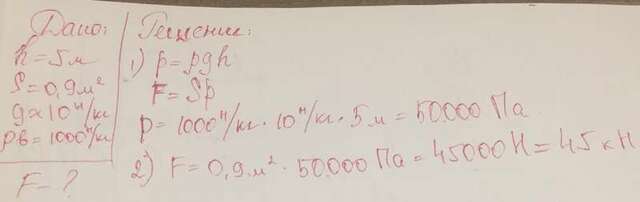 Дано:
h = 5 м
S = 0,9 м²
g ≈ 10 н/кг
ρв = 1000 н/кг
F = ?
Решение:
1) p = ρgh
F = Sp
p = 1000 н/кг · 10 н/кг · 5 м = 50.000 Па
2) F = 0,9 м² · 50.000 Па = 45000 Н = 45 кН